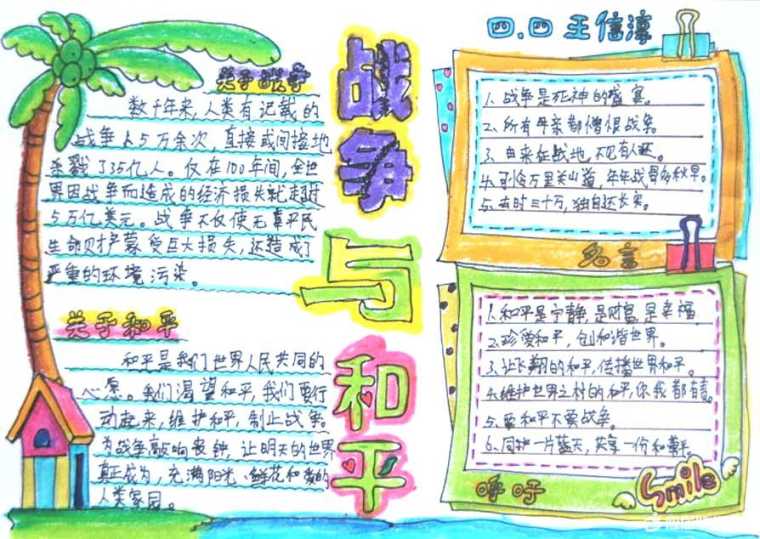 四.四 王信淳
战争与和平
关于战争
数千年来,人类有记载的
战争上5万余次,直接或间接地
杀戮了35亿人。仅在100年间,全世
界因战争而造成的经济损失就超过
5万亿美元。战争不仅使无辜平民
生命财产蒙受巨大损失,还造成了
严重的环境污染。
关于和平
和平是我们世界人民共同的
心愿。我们渴望和平,我们要行
动起来,维护和平,制止战争。
为战争敲响丧钟,让明天的世界
真正成为,充满阳光、鲜花和爱的
人类家园。
1、战争是死神的盛宴。
2、所有母亲都憎恨战争。
3、由来征战地,不见有人还。
4、可怜万里关山道,年年战骨多秋草。
5、去时三十万,独自还长安。
名言
1、和平是宁静,是财富,是幸福
2、珍爱和平,创和谐世界。
3、让飞翔的和平,传播世界和平。
4、维护世界之村的和平,你我都有责。
5、要和平不要战争。
6、同护一片蓝天,共享一份和平
呼吁
Smile